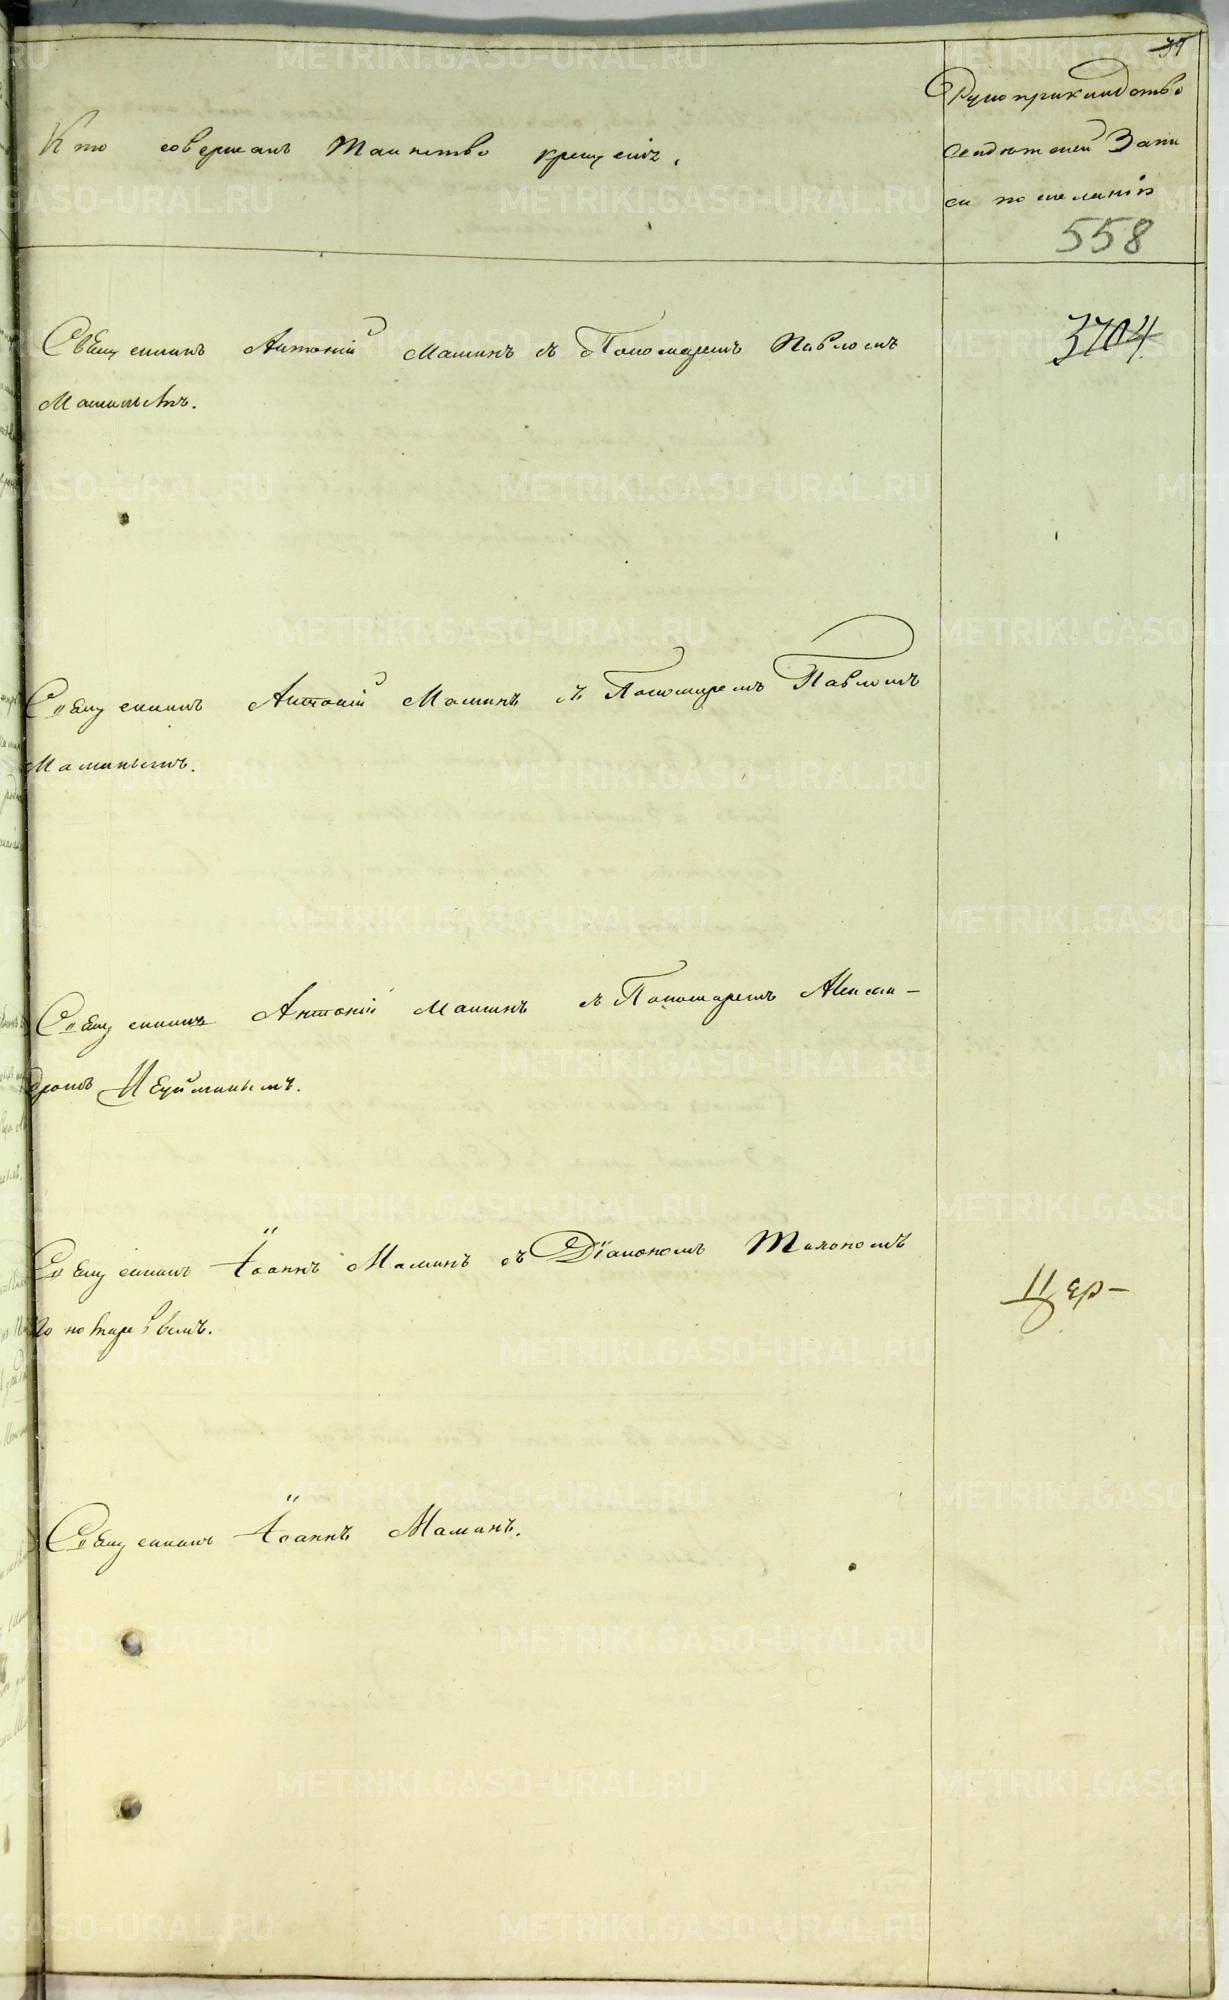 Кто совершалъ Таинство крещенія.
Рукоприкладство
свидѣтелей Запи
си по желанію
558
3704
Священникъ Антоній Маминъ съ Пономаремъ Павломъ
Маминымъ.
Священникъ Антоній Маминъ съ Пономаремъ Павломъ
Маминымъ.
Священникъ Антоній Маминъ съ Пономаремъ Алексан-
дромъ Неуйминымъ.
Священникъ Іоаннъ Маминъ съ Діакономъ Тихономъ
Цер-
Священникъ Іоаннъ Маминъ.
METRIKI.GASO-URAL.RU